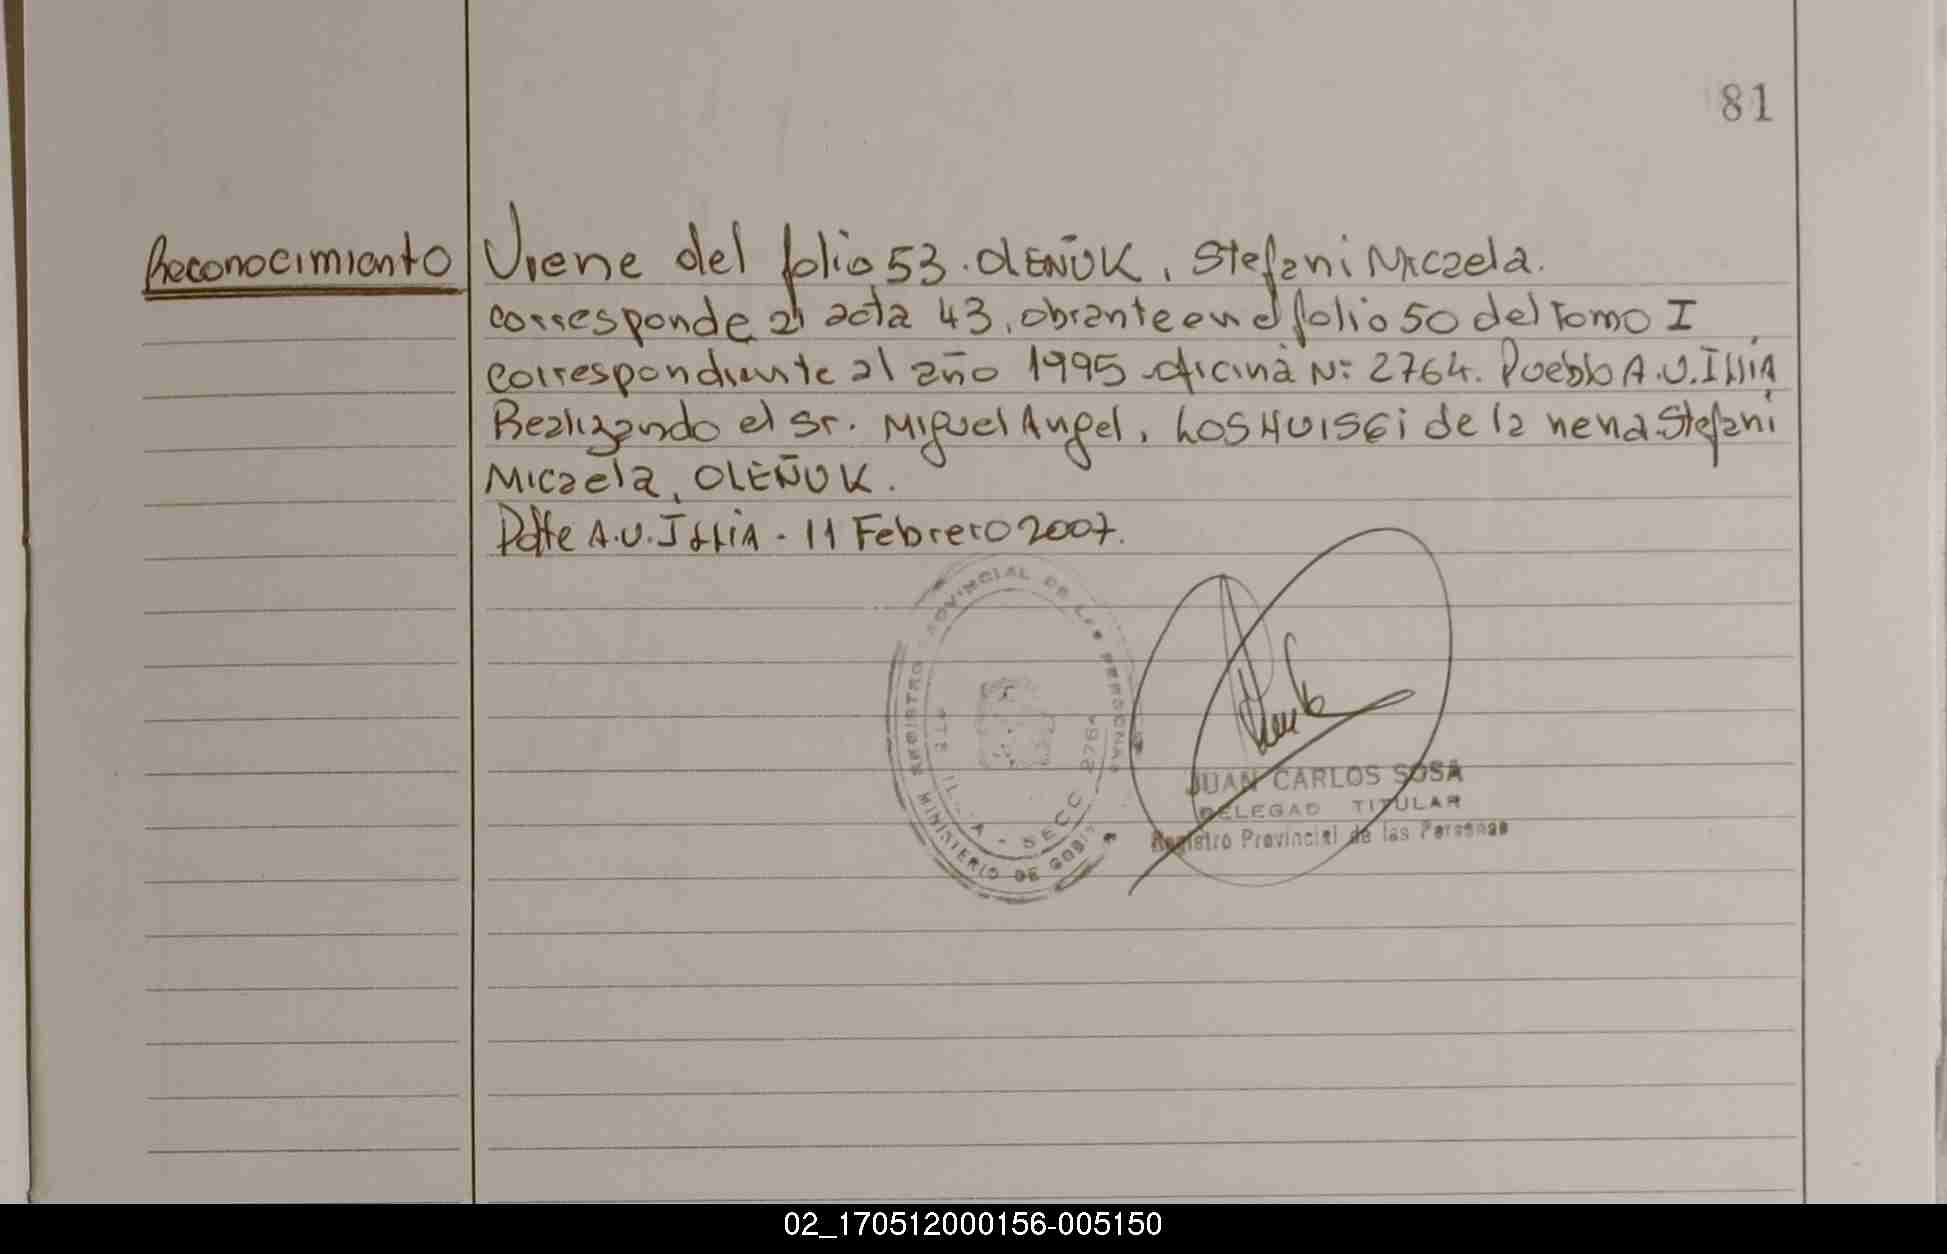 81
Reconocimiento
Viene del folio 53. OLEÑUK, Stefani Micaela.
corresponde al acta 43, obrante en el folio 50 del Tomo I
correspondiente al año 1995 oficina Nº 2764. Pueblo A.U. Illia
Realizando el Sr. Miguel Angel, LOSHUISEi de la nena Stefani
Micaela, OLEÑUK.
A.U. Illia - 11 Febrero 2007.
REGISTRO PROVINCIAL DE LAS PERSONAS
SECC 2764
MINISTERIO DE GOB
JUAN CARLOS SOSA
DELEGAD TITULAR
Registro Provincial de las Personas
02_170512000156-005150